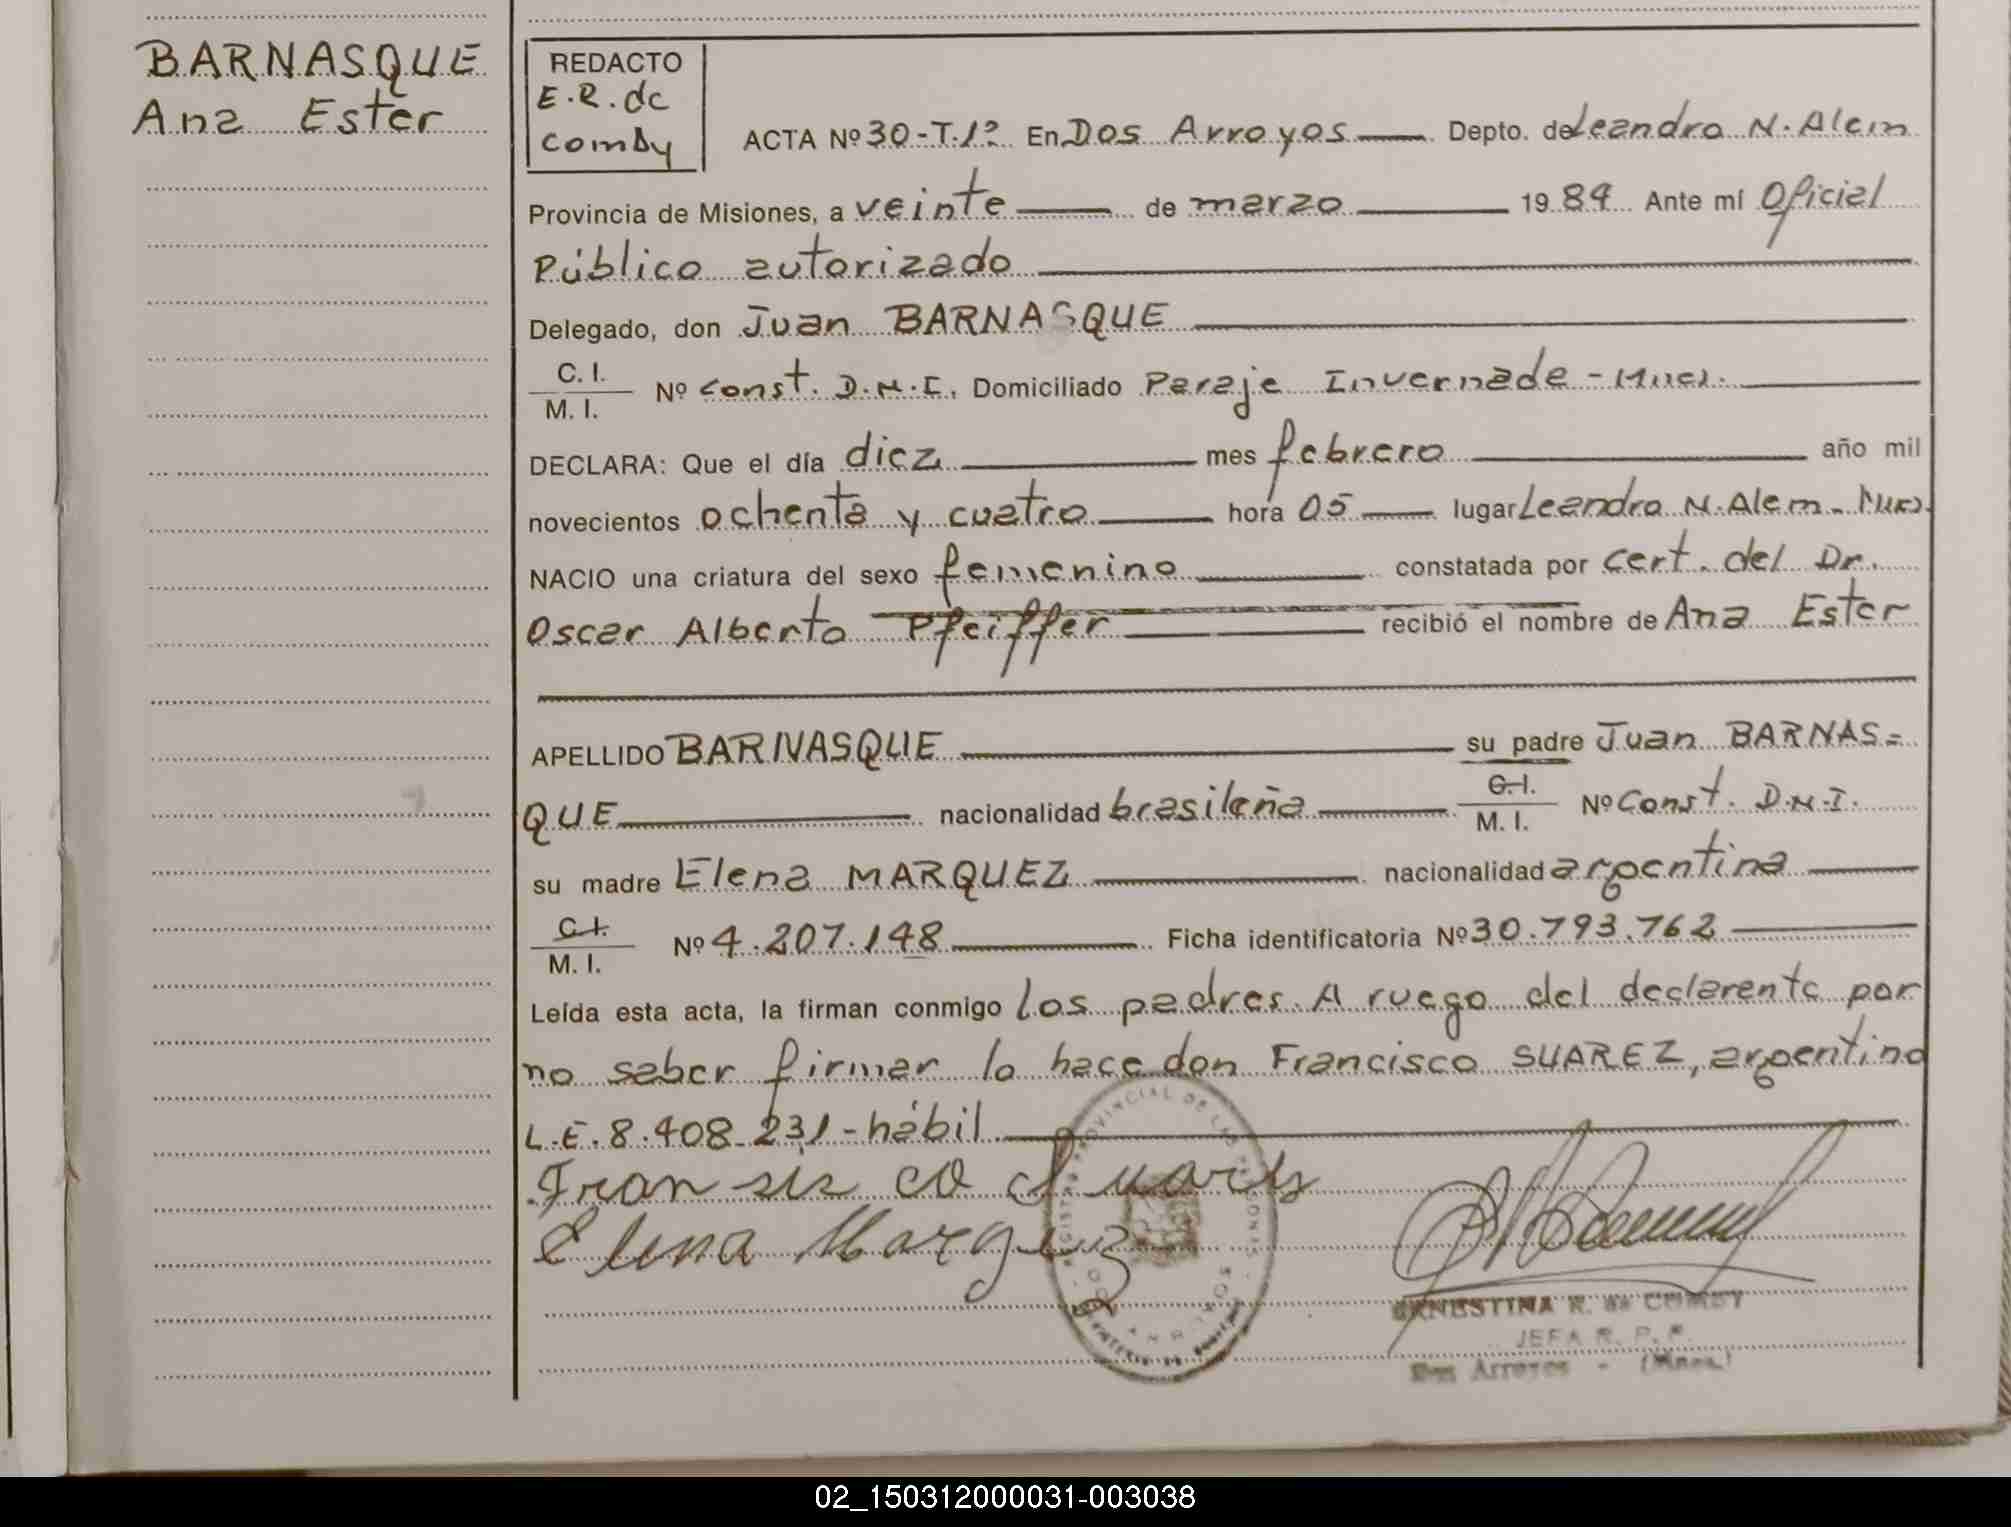 BARNASQUE
Ana Ester
REDACTO
E.R. de
Comby
ACTA Nº 30-T.1º En Dos Arroyos Depto. de Leandro N. Alem
Provincia de Misiones, a veinte de marzo 19 84 Ante mí Oficial
Público autorizado
Delegado, don Juan BARNASQUE
C. I.
M. I. Nº Const. D.N.I. Domiciliado Paraje Invernada - Mnes.
DECLARA: Que el día diez mes febrero año mil
novecientos ochenta y cuatro hora 05 lugar Leandro N. Alem - Mnes.
NACIO una criatura del sexo femenino constatada por cert. del Dr.
Oscar Alberto Pfeiffer recibió el nombre de Ana Ester
APELLIDO BARNASQUE su padre Juan BARNAS=
QUE nacionalidad brasileña C.I. M. I. Nº Const. D.N.I.
su madre Elena MARQUEZ nacionalidad argentina
C.I.
M. I. Nº 4.207.148 Ficha identificatoria Nº 30.793.762
Leída esta acta, la firman conmigo los padres. A ruego del declarente por
no saber firmar lo hace don Francisco SUAREZ, argentino
L.E. 8.408.231 - hábil
Fransisco Suares
Elena Marquez
REGISTRO PROVINCIAL DE LAS PERSONAS
ERNESTINA R. de COMBY
JEFA R. P. P.
Dos Arroyos - (Mnes.)
02_150312000031-003038